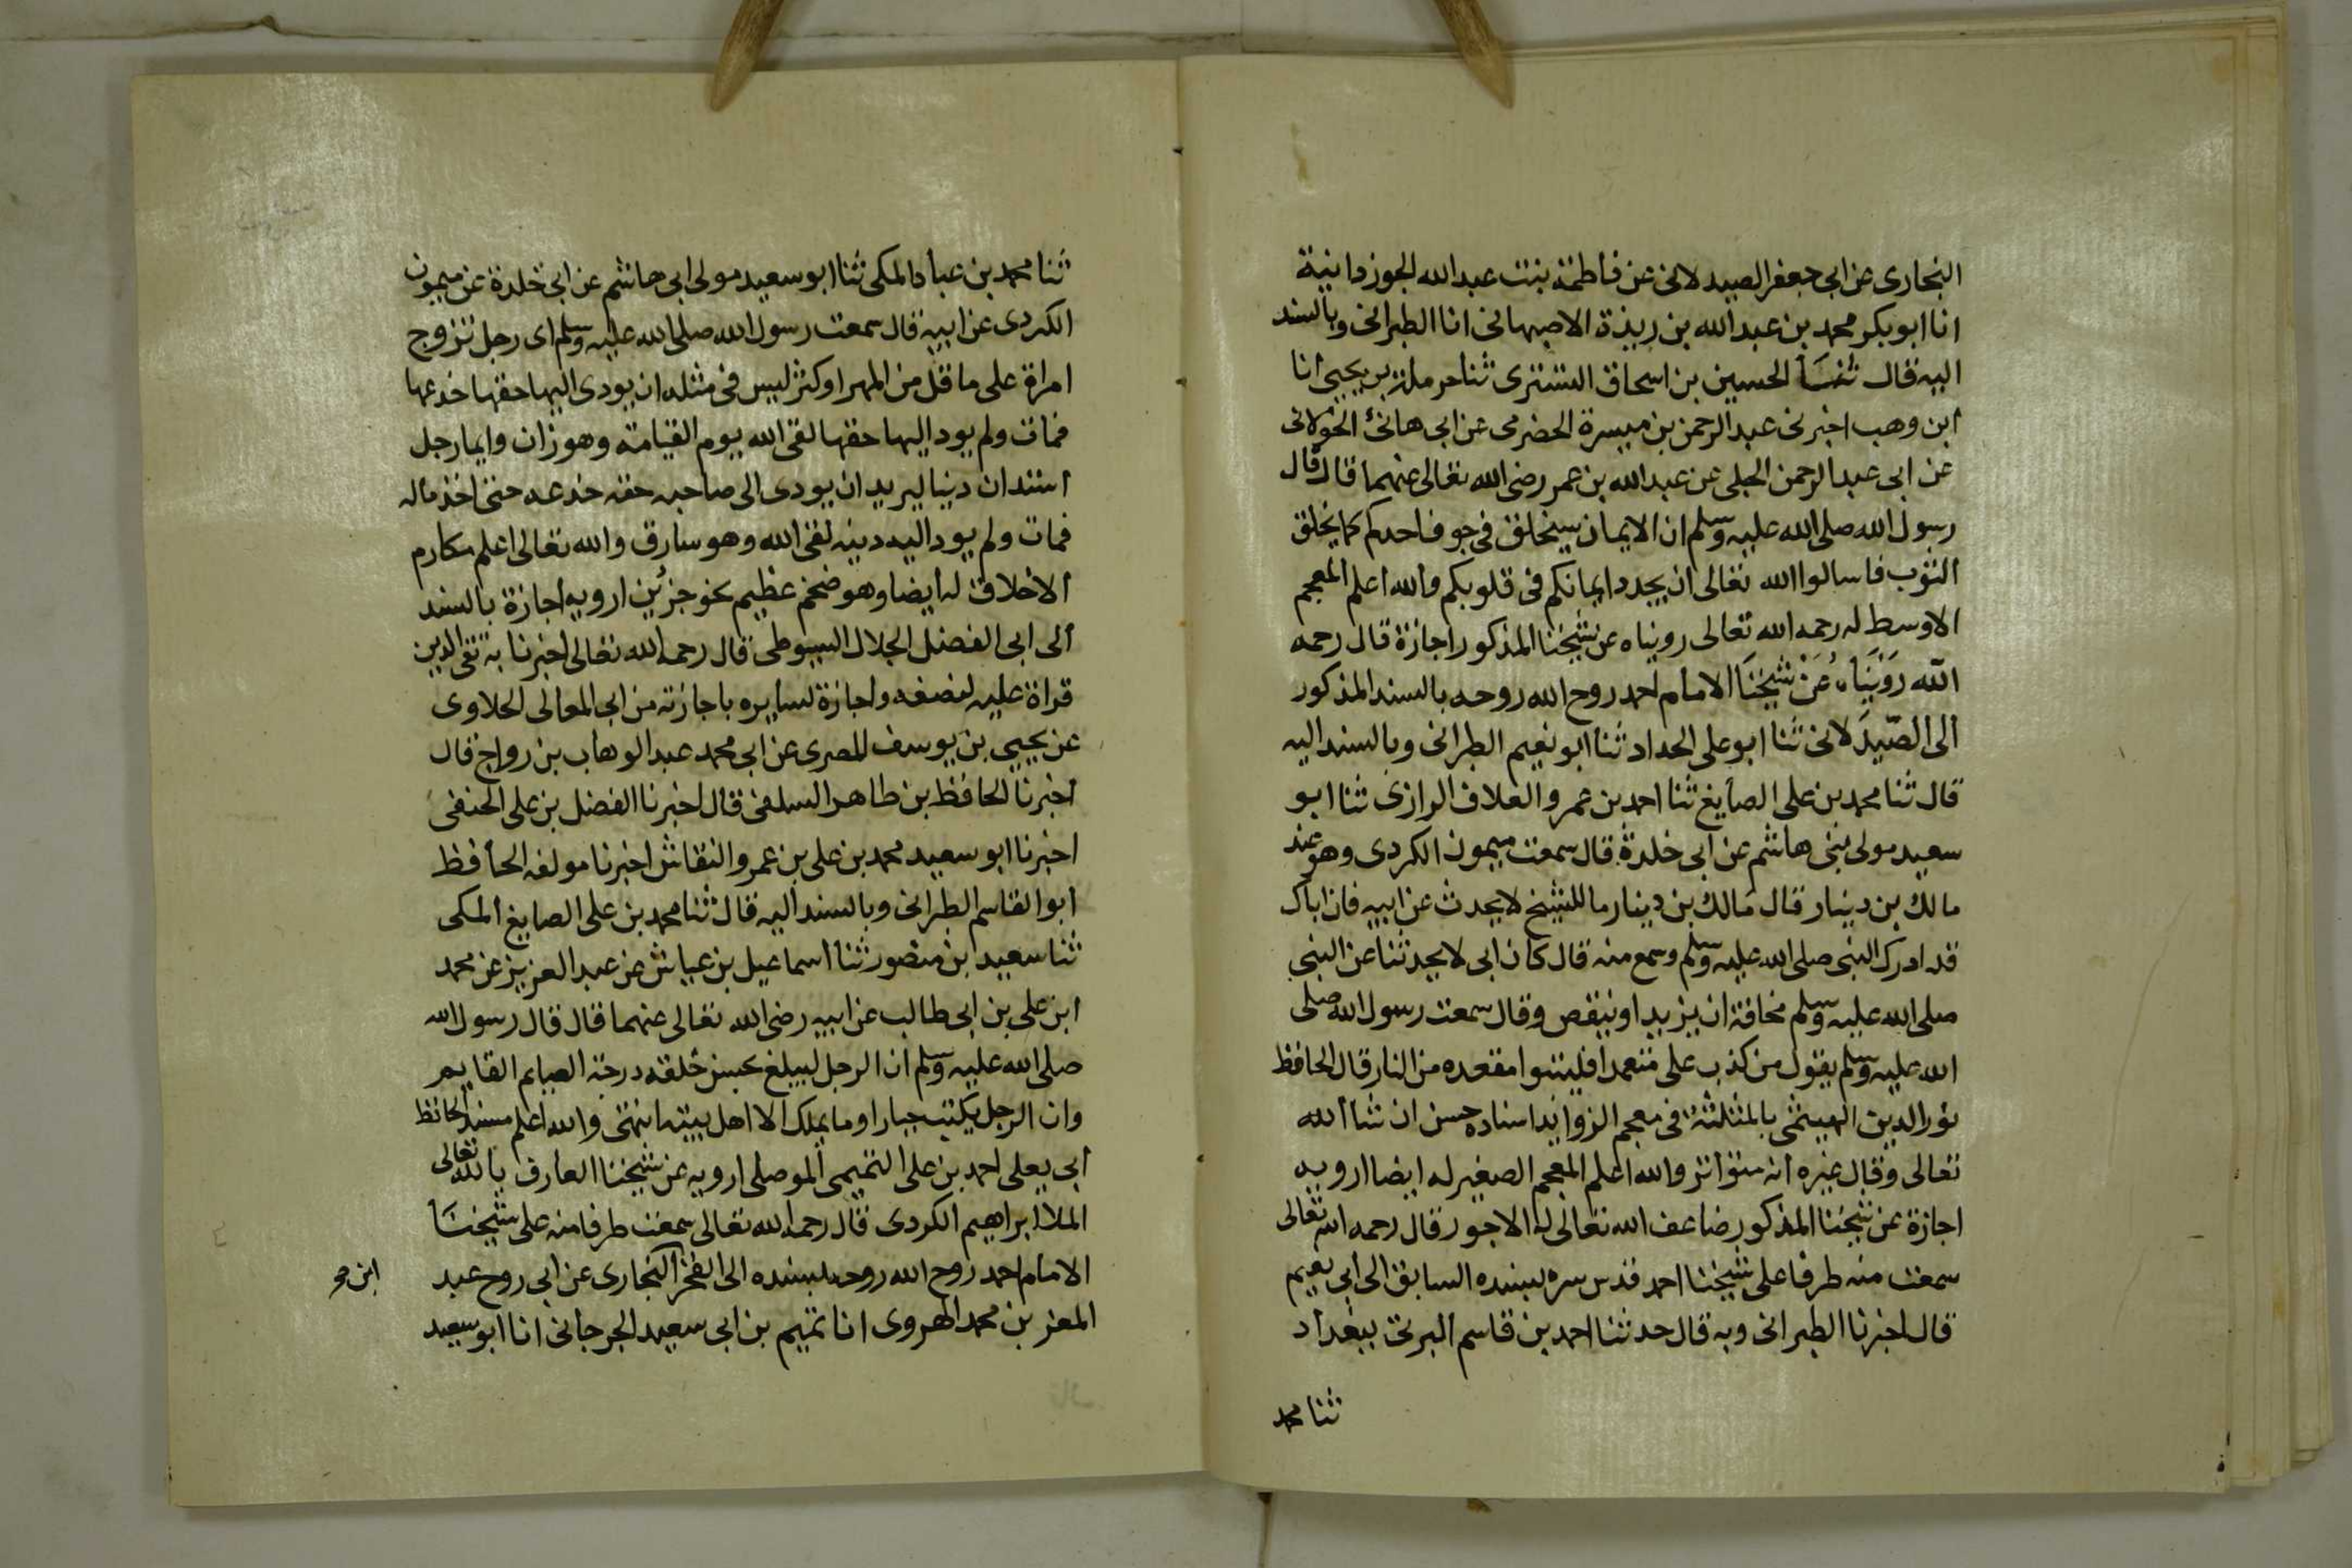 البخارى عن ابى جعفر الصيدلانى عن فاطمة بنت عبدالله الجوزدانية
انا ابوبكر محمد بن عبدالله بن ريذة الاصبهانى انا الطبرانى وبالسند
اليه قال ثنا الحسين بن اسحاق التسترى ثنا حرملة بن يحيى انا
ابن وهب اخبرنى عبدالرحمن بن ميسرة الحضرمى عن ابى هانئ الخولانى
عن ابى عبدالرحمن الحبلى عن عبدالله بن عمر رضى الله تعالى عنهما قال قال
رسول الله صلى الله عليه وسلم ان الايمان سيخلق فى جوف احدكم كما يخلق
الثوب فاسالوا الله تعالى ان يجدد ايمانكم فى قلوبكم والله اعلم المعجم
الاوسط له رحمه الله تعالى رويناه عن شيخنا المذكور اجازة قال رحمه
الله رويناه عن شيخنا الامام احمد روح الله روحه بالسند المذكور
الى الصيدلانى ثنا ابوعلى الحداد ثنا ابونعيم الطبرانى وبالسند اليه
قال ثنا محمد بن على الصايغ ثنا احمد بن عمرو العلاف الرازى ثنا ابو
سعيد مولى بنى هاشم عن ابى خلدة قال سمعت ميمون الكردى وهو عند
مالك بن دينار قال مالك بن دينار ما للشيخ لا يحدث عن ابيه فان اباك
قد ادرك النبى صلى الله عليه وسلم وسمع منه قال كان ابى لا يحدثنا عن النبى
صلى الله عليه وسلم مخافة ان يزيد او ينقص وقال سمعت رسول الله صلى
الله عليه وسلم يقول من كذب على متعمدا فليتبوا مقعده من النار قال الحافظ
نور الدين الهيثمى بالمثلثة فى معجم الزوايد اسناده حسن ان شاالله
تعالى وقال غيره انه متواتر والله اعلم المعجم الصغير له ايضا ارويه
اجازة عن شيخنا المذكور ضاعف الله تعالى له الاجور قال رحمه الله تعالى
سمعت منه طرفا على شيخنا احمد قدس سره بسنده السابق الى ابى نعيم
قال اخبرنا الطبرانى وبه قال حدثنا احمد بن قاسم البرتى ببغداد
ثنا محمد
ثنا محمد بن عباد المكى ثنا ابوسعيد مولى ابى هاشم عن ابى خلدة عن ميمون
الكردى عن ابيه قال سمعت رسول الله صلى الله عليه وسلم اى رجل تزوج
امراة على ما قل من المهر او كثر ليس فى مثله ان يودى اليها حقها خدعها
فمات ولم يود اليها حقها لقى الله يوم القيامة وهو زان وايما رجل
استدان دينا ليريد ان يودى الى صاحبه حقه خدعه حتى اخذ ماله
فمات ولم يود اليه دينه لقى الله وهو سارق والله تعالى اعلم مكارم
الاخلاق له ايضا وهو ضخم عظيم نحو جزئين ارويه اجازة بالسند
الى ابى الفضل الجلال السيوطى قال رحمه الله تعالى اخبرنا به تقى الدين
قراة عليه لنصفه واجازة لسايره باجازته من ابى المعالى الحلاوى
عن يحيى بن يوسف المصرى عن ابى محمد عبدالوهاب بن رواج قال
اخبرنا الحافظ بن طاهر السلفى قال اخبرنا الفضل بن على الحنفى
اخبرنا ابوسعيد محمد بن على بن عمرو النقاش اخبرنا مولفه الحافظ
ابوالقاسم الطبرانى وبالسند اليه قال ثنا محمد بن على الصايغ المكى
ثنا سعيد ابن منصور ثنا اسماعيل بن عياش عن عبدالعزيز عن محمد
ابن على بن ابى طالب عن ابيه رضى الله تعالى عنهما قال قال رسول الله
صلى الله عليه وسلم ان الرجل ليبلغ بحسن خلقه درجة الصايم القايم
وان الرجل يكتب جبارا وما يملك الا اهل بيته انتهى والله اعلم مسند الحافظ
ابى يعلى احمد بن على التميمى الموصلى ارويه عن شيخنا العارف بالله تعالى
الملا ابراهيم الكردى قال رحمه الله تعالى سمعت طرفا منه على شيخنا
الامام احمد روح الله روحه بسنده الى الفخر البخارى عن ابى روح عبد
المعز بن محمد الهروى انا تميم بن ابى سعيد الجرجانى انا ابوسعيد